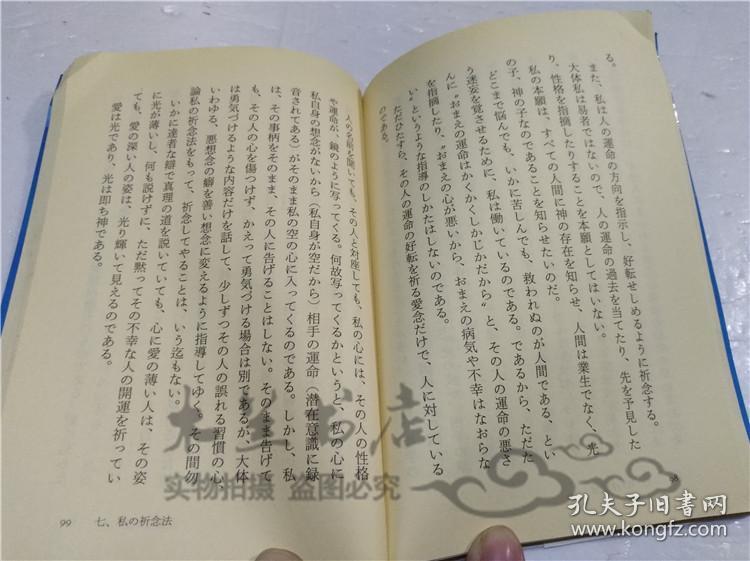 る。
また、私は人の運命の方向を指示し、好転せしめるように祈念する。
大体私は易者ではないので、人の運命の過去を当てたり、先を予見した
り、性格を指摘したりすることを本願としてはいない。
私の本願は、すべての人間に神の存在を知らせ、人間は業生でなく、光
の子、神の子なのであることを知らせたいのだ。
どこまで悩んでも、いかに苦しんでも、救われぬのが人間である、とい
う迷妄を覚させるために、私は働いているのである。であるから、ただた
んに〝おまえの運命はかくかくしかじかだから〟と、その人の運命の悪さ
を指摘したり、〝おまえの心が悪いから、おまえの病気や不幸はなおらな
い〟というような指導のしかたはしないのである。
ただひたすら、その人の運命の好転を祈る愛念だけで、人に対している
のである。
98
人の名前を聞いても、その人と対座しても、私の心には、その人の性格
や運命が、鏡のように写ってくる。何故写ってくるかというと、私の心に
私自身の想念がないから（私自身が空だから）相手の運命（潜在意識に録
音されてある）がそのまま私の空の心に入ってくるのである。しかし、私
は、その事柄をそのまま、その人に告げることはしない。そのまま告げて
も、その人の心を傷つけず、かえって勇気づける場合は別であるが、大体
は勇気づけるような内容だけを話して、少しずつその人の誤れる習慣の心、
いわゆる、悪想念の癖を善い想念に変えるように指導してゆく。その間勿
論私の祈念法をもって、祈念してやることは、いう迄もない。
いかに達者な辯で真理の道を説いていても、心に愛の薄い人は、その姿
に光が薄いし、何も説けずに、ただ黙ってその不幸な人の開運を祈ってい
ても、愛の深い人の姿は、光り輝いて見えるのである。
愛は光であり、光は即ち神である。
99 七、私の祈念法
实物拍摄 盗图必究
孔夫子旧书网
www.kongfz.com